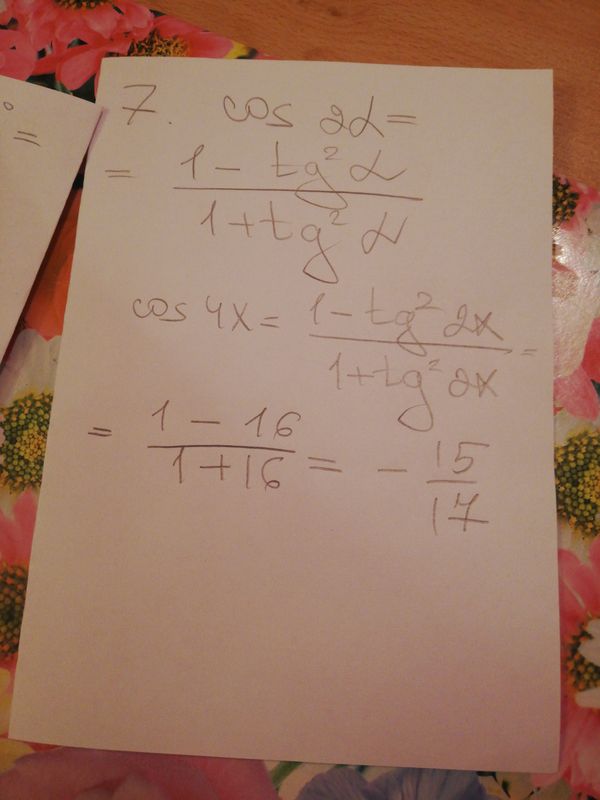 ° =
7. cos 2α =
= (1 - tg² α) / (1 + tg² α)
cos 4x = (1 - tg² 2x) / (1 + tg² 2x) =
= (1 - 16) / (1 + 16) = - 15/17